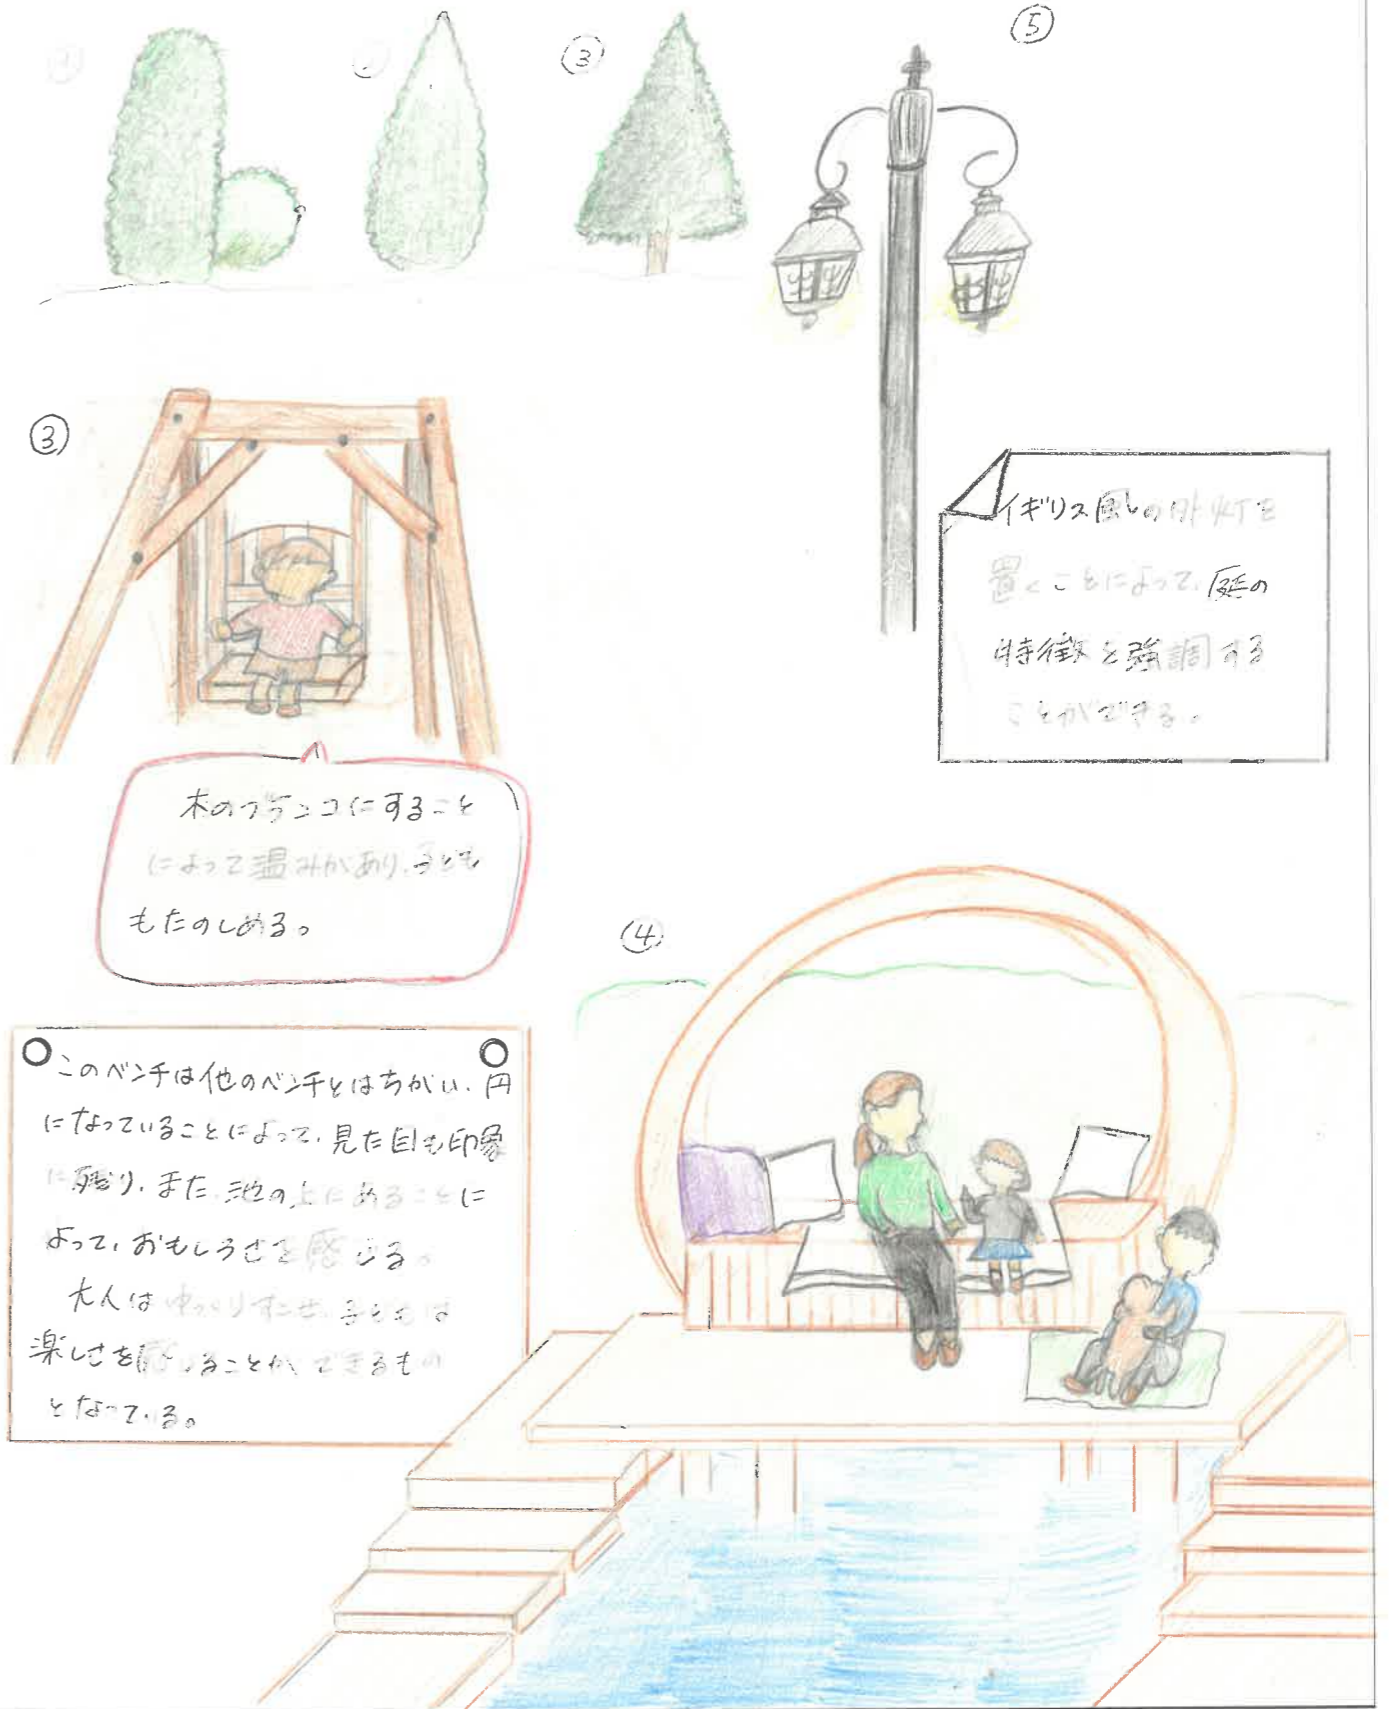 ①
②
③
⑤
③
イギリス風の外灯を
置くことによって、庭の
特徴を強調する
ことができる。
木のブランコにすること
によって温みがあり、子ども
もたのしめる。
④
このベンチは他のベンチとはちがい、円
になっていることによって、見た目も印象
に残り、また池の上にあることに
よって、おもしろさを感じる。
大人はゆっくりすごせ、子どもは
楽しさを感じることができるもの
となっている。